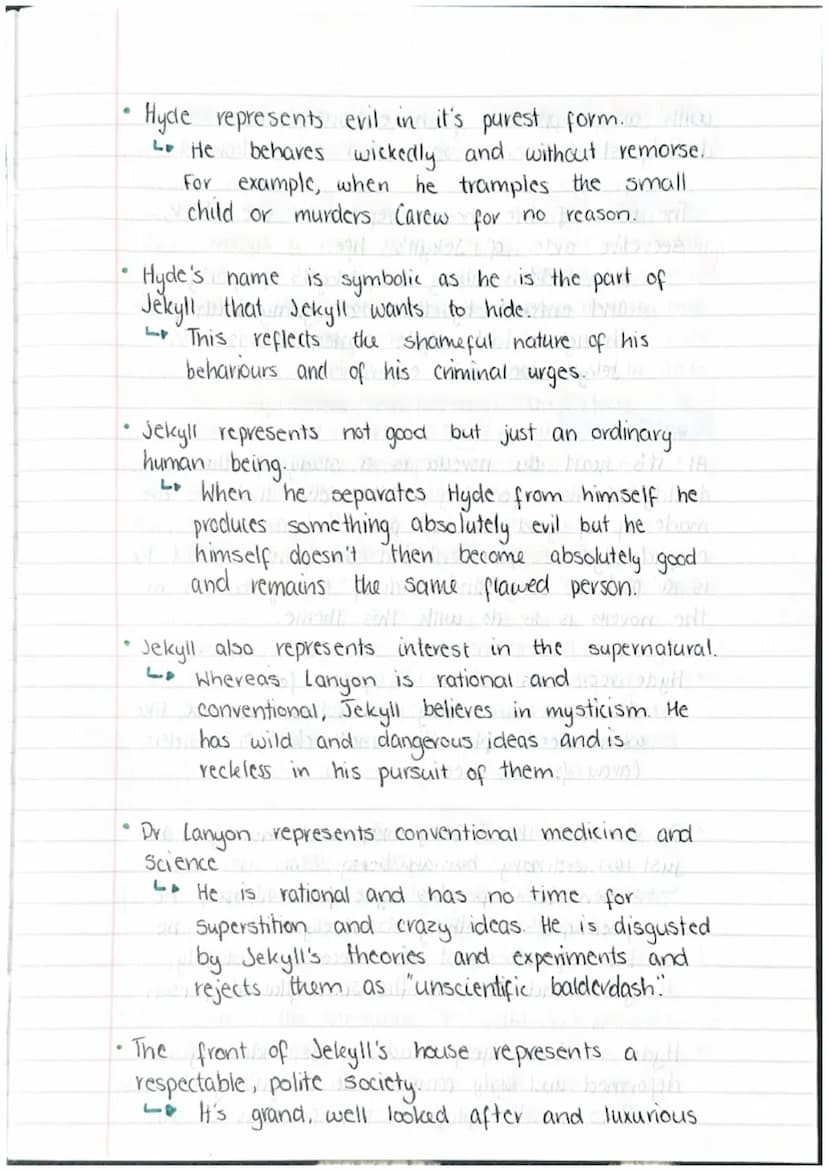 • Hyde represents evil in it's purest form.
↳ He behaves wickedly and without remorse.
For example, when he tramples the small
child or murders Carew for no reason.
• Hyde's name is symbolic as he is the part of
Jekyll that Jekyll wants to hide.
↳ This reflects the shameful nature of his
behaviours and of his criminal urges.
• Jekyll represents not good but just an ordinary
human being.
↳ When he separates Hyde from himself he
produces something absolutely evil but he
himself doesn't then become absolutely good
and remains the same flawed person.
• Jekyll also represents interest in the supernatural.
↳ Whereas Lanyon is rational and
conventional, Jekyll believes in mysticism. He
has wild and dangerous ideas and is
reckless in his pursuit of them.
• Dr Lanyon represents conventional medicine and
Science
↳ He is rational and has no time for
superstition and crazy ideas. He is disgusted
by Jekyll's theories and experiments and
rejects them as "unscientific balderdash."
• The front of Jekyll's house represents a
respectable, polite society.
↳ It's grand, well looked after and luxurious